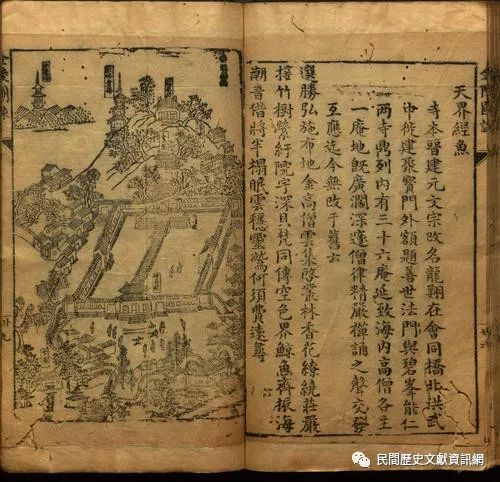 天界經魚
寺本晉建元文宗改名龍翔在會同橋北洪武
中徙建聚寶門外額題善世法門與碧峯能仁
兩寺鼎列內有三十六庵延致海內高僧各主
一庵地既廣濶深邃僧律精嚴禪誦之聲交發
互應迄今無改于舊云
選勝弘施布地金高僧雲集啓叢林香花繚繞莊嚴
接竹樹縈紆院宇深貝梵同傳空色界鯨魚齊振海
潮音借將半榻眠雲穩靈鷲何須費遠尋
民間歷史文獻資訊網